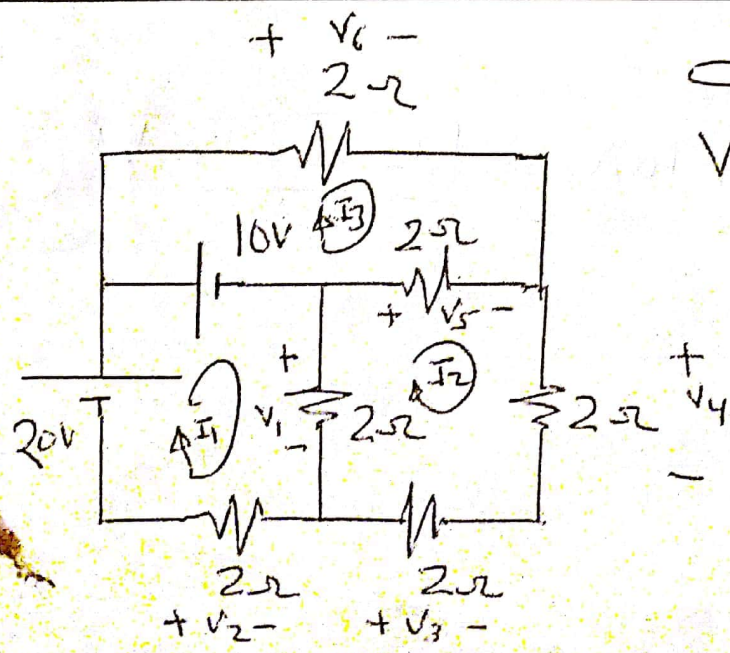 + V6 -
2Ω
V
10V I3 2Ω
+ V5 -
+ I2 +
20V I1 V1 2Ω 2Ω V4
- -
2Ω 2Ω
+ V2 - + V3 -